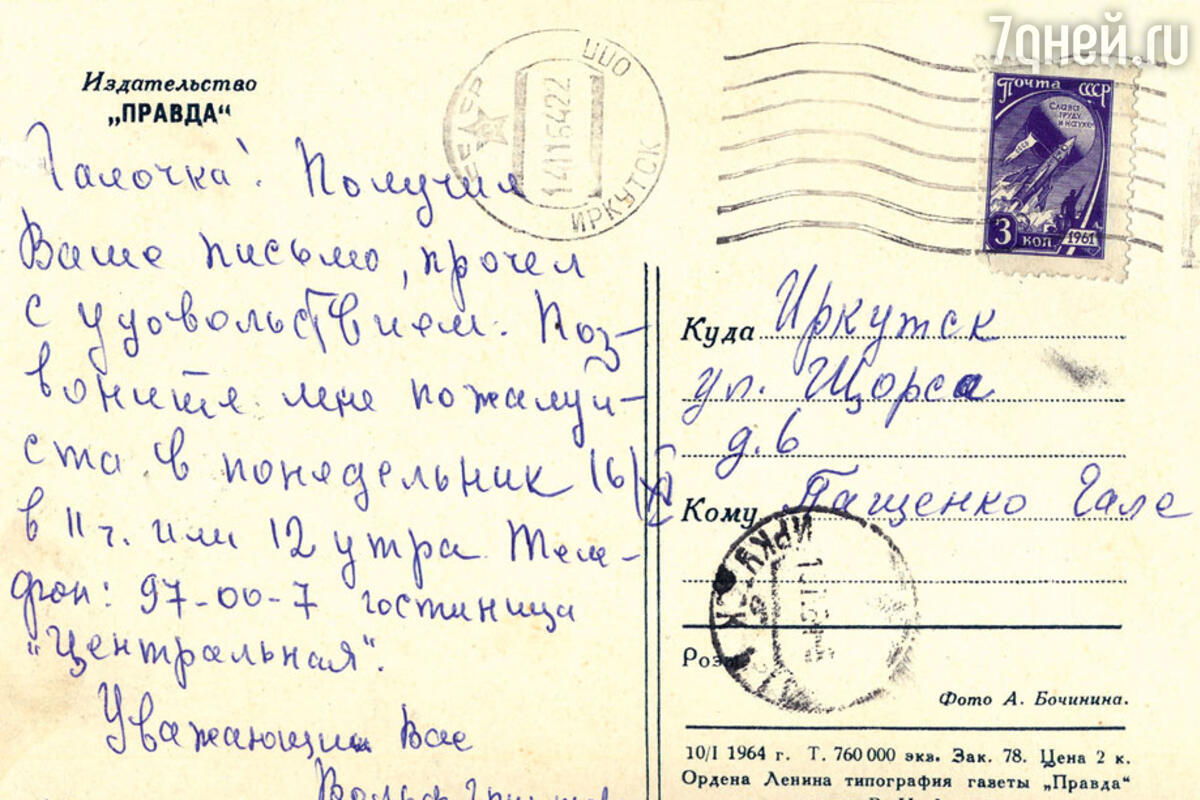 7дней.ru
Издательство
„ПРАВДА“
СССР
ЦПО
141116422
ИРКУТСК
Почта СССР
Слава
труду
и науке
3 коп. 1961
Галочка! Получил
Ваше письмо, прочел
с удовольствием. Поз-
воните мне пожалуй-
ста в понедельник 16/XI
в 11 ч. или 12 утра. Теле-
фон: 97-00-7 гостиница
"Центральная".
Уважающий Вас
Куда Иркутск
ул. Щорса
д. 6
Кому Пащенко Гале
ИРКУТСК
Фото А. Бочинина.
10/I 1964 г. Т. 760 000 экв. Зак. 78. Цена 2 к.
Ордена Ленина типография газеты „Правда“